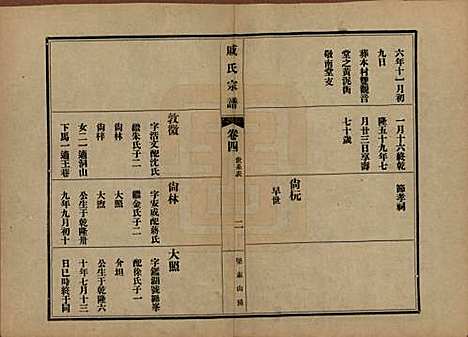 六年十一月初
九日
葬本村雙觀音
堂之黃泥街
敬南堂支
一月十六終乾
隆五十九年七
月廿三日享壽
七十歲
尙杬
早世
節孝祠
戚氏宗譜
卷四
世系表
二
敦徵
字浩文配沈氏
繼朱氏子二
尙林
尙梓
女二一適洞山
下馬一適王巷
尙林
字安成配蔣氏
繼金氏子二
大照
公生于乾隆卅
九年九月初十
大照
字鑑湖號聯峯
配徐氏子一
介坦
公生于乾隆六
十年七月十三
日巳時終于同